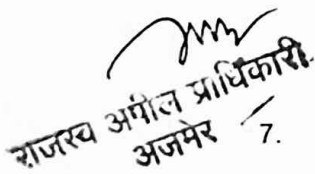 राजस्व अपील प्राधिकारी
अजमेर 7.